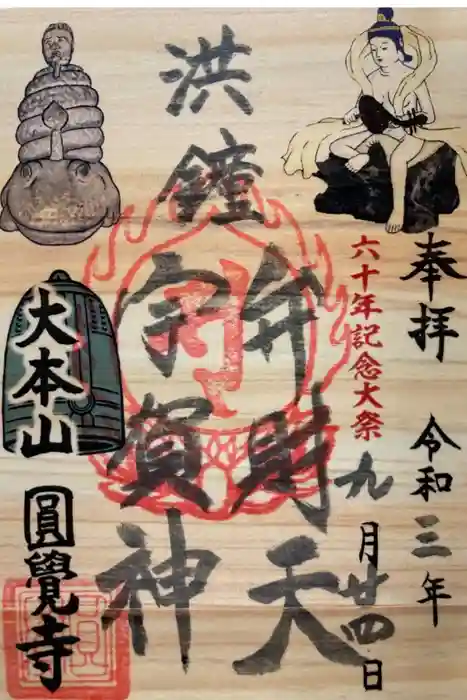 奉拝
令和三年
九月廿四日
六十年記念大祭
洪鐘
弁財天
宇賀神
大本山
圓覺寺